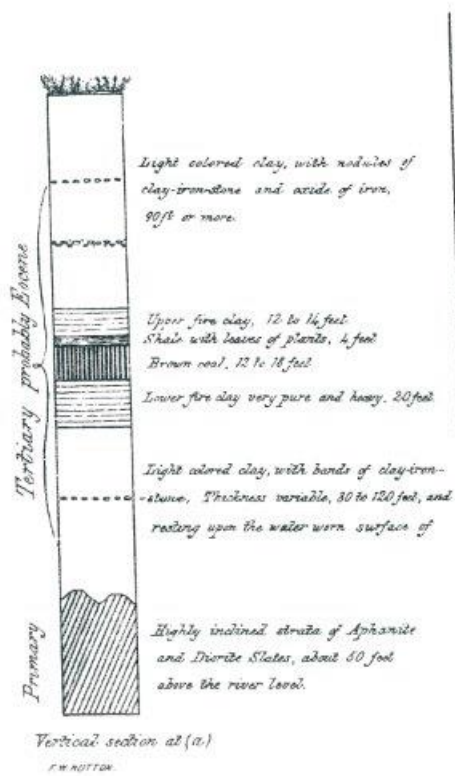 Light colored clay, with nodules of
clay-iron-stone and oxide of iron,
90ft or more.
Upper fire clay, 12 to 14 feet
Shale with leaves of plants, 4 feet
Brown coal, 12 to 18 feet
Lower fire clay very pure and heavy, 20 feet
Light colored clay, with bands of clay-iron-
-stone, Thickness variable, 30 to 120 feet, and
resting upon the water worn surface of
Highly inclined strata of Aphanite
and Diorite Slates, about 50 feet
above the river level.
Tertiary probably Eocene
Primary
Vertical section at (a.)
F.W. HUTTON.